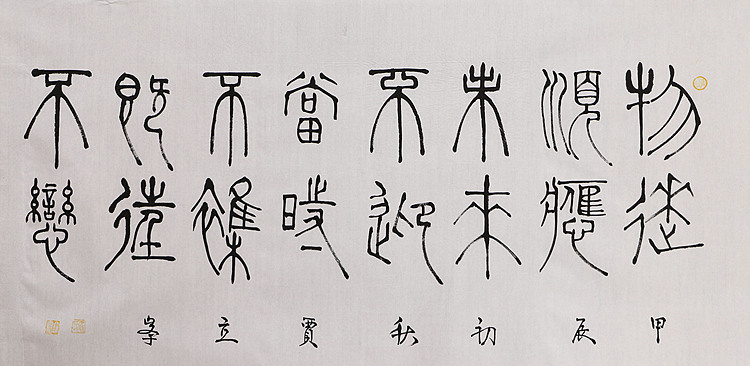 物來
順應
未來
不迎
當時
不雜
既往
不戀
甲辰初秋賈立峯